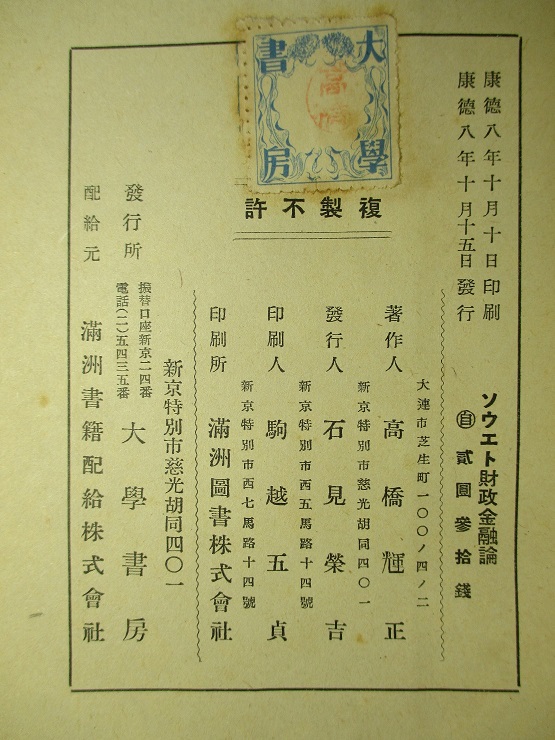 大學書房
高橋
康德八年十月十日印刷
康德八年十月十五日發行
ソウエト財政金融論
自 貳圓參拾錢
複製不許
大連市芝生町一〇〇ノ四ノ二
著作人 高橋輝正
新京特別市慈光胡同四〇一
發行人 石見榮吉
新京特別市西五馬路十四號
印刷人 駒越五貞
新京特別市西七馬路十四號
印刷所 滿洲圖書株式會社
新京特別市慈光胡同四〇一
發行所 大學書房
振替口座新京二四番
電話(二)五四三五番
配給元 滿洲書籍配給株式會社